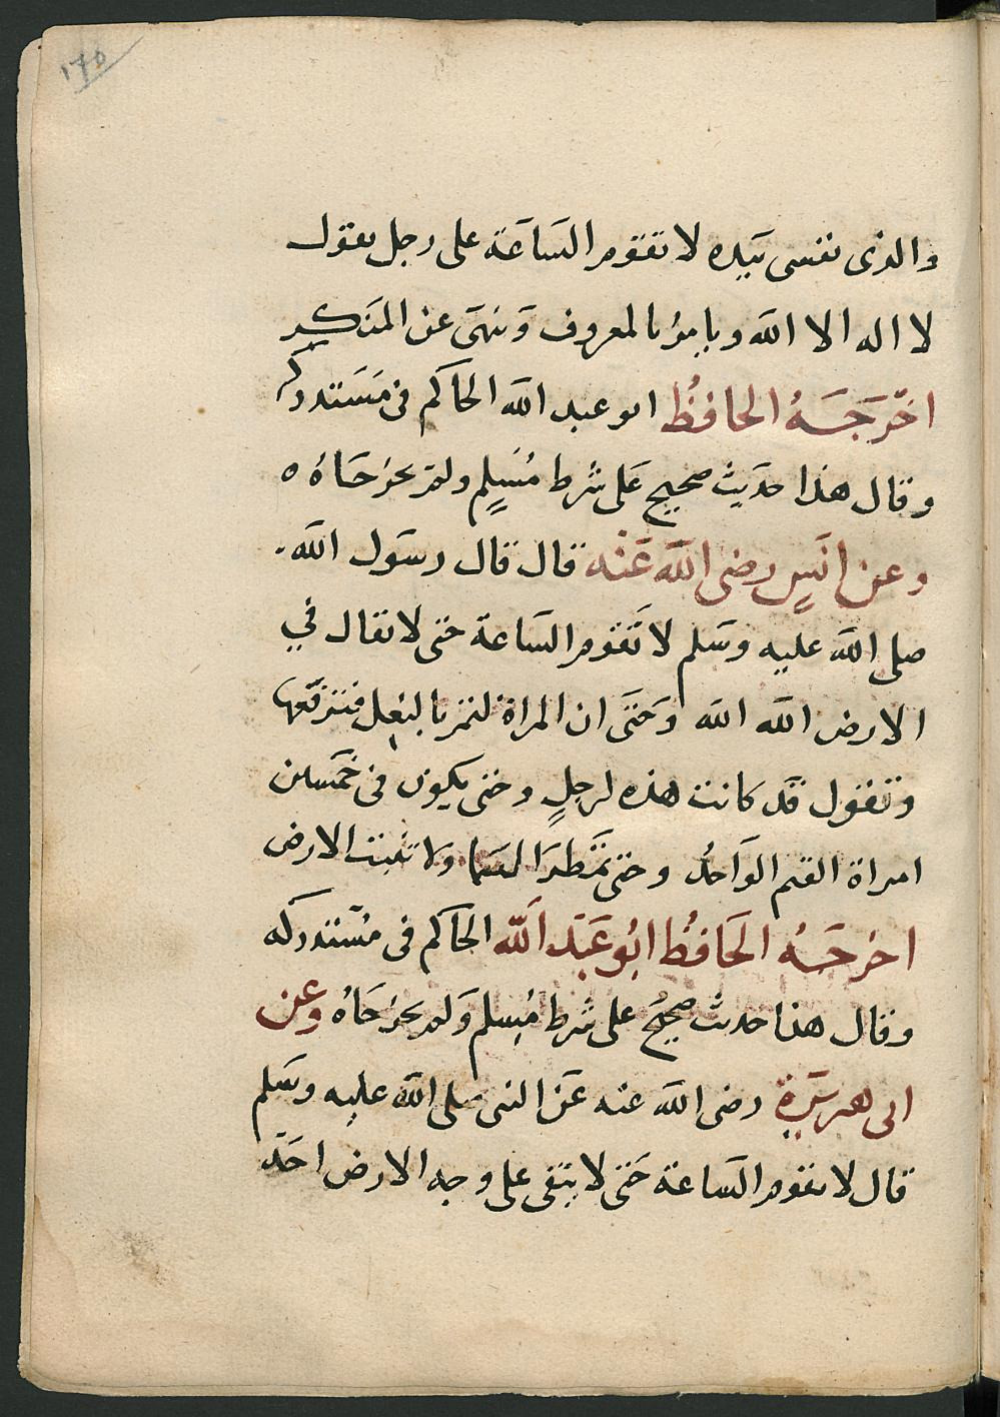 ١٧٥
والذى نفسى بيده لا تقوم الساعة على رجل يقول
لا اله الا الله ويامر بالمعروف وينهى عن المنكر
اخرجه الحافظ ابو عبد الله الحاكم فى مستدركه
وقال هذا حديث صحيح على شرط مسلم ولم يخرجاه ه
وعن انس رضى الله عنه قال قال رسول الله
صلى الله عليه وسلم لا تقوم الساعة حتى لا يقال في
الارض الله الله وحتى ان المراة لتمر بالبعل فترفعها
وتقول قد كانت هذه لرجل وحتى يكون فى خمسين
امراة القيم الواحد وحتى تمطر السما ولا تنبت الارض
اخرجه الحافظ ابو عبد الله الحاكم فى مستدركه
وقال هذا حديث صحيح على شرط مسلم ولم يخرجاه وعن
ابى هريرة رضى الله عنه عن النبى صلى الله عليه وسلم
قال لا تقوم الساعة حتى لا يبقى على وجه الارض احد